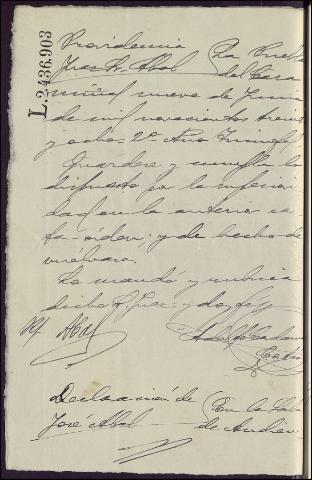 L.2436.903
Providencia La Puebla
Juez Sr. Abal del Cara
miñal nueve de Junio
de mil novecientos treinta
y ocho = 2º Año Triunfal
Guardese y cumplase lo
dispuesto por la superiori
dad en la anterior car
ta-órden; y de hecho de
vuélvase.
Lo mandó y rubrica
dicho Sr. Juez y doy fe
Abal
Declaración de En la Sala
José Abal de Audien